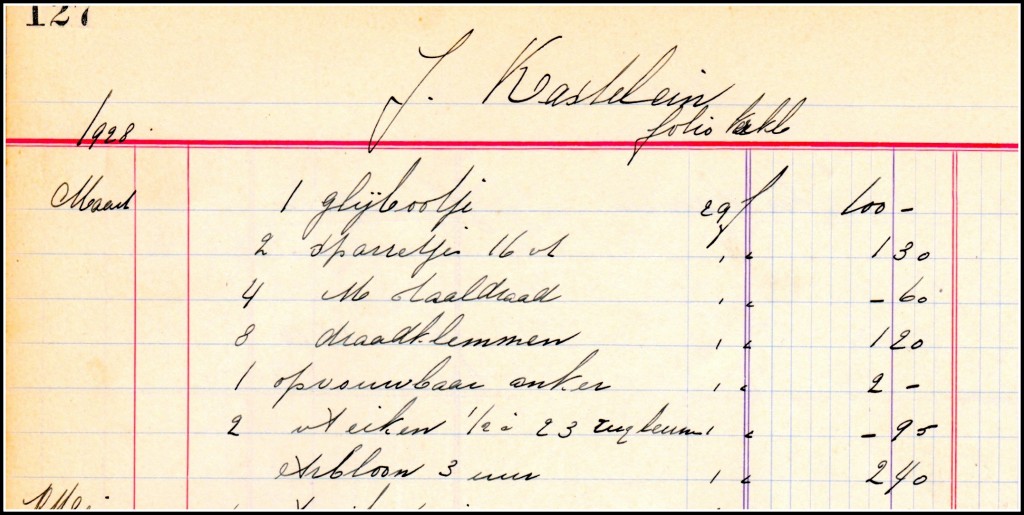 127
J. Kastelein
1928. folio
Maart 1 glijbootje 29 f 100 -
2 sparretjes 16 vt " " 1 30
4 M staaldraad " " - 60
8 draadklemmen " " 1 20
1 opvouwbaar anker " " 2 -
2 vt eiken 1/2 à 23 rugleun " " - 95
Arbloon 3 uur " " 2 40
Mei